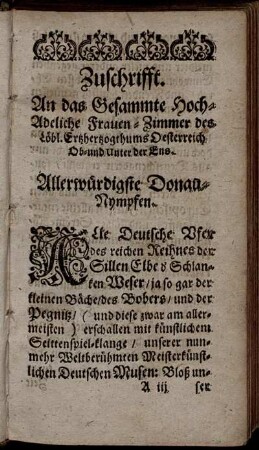 Zuschrifft.
An das Gesammte Hoch-
Adeliche Frauen-Zimmer des
Löbl. Ertzhertzogthums Oesterreich
Ob-und Unter der Ens.
Allerwürdigste Donau-
Nympfen.
ALle Deutsche Vfer
des reichen Reihnes der
Stillen Elbe & Schlan-
cken Weser/ ja so gar der
kleinen Bäche/ des Bobers/ und der
Pegnitz/ ( und diese zwar am aller-
meisten ) erschallen mit künstlichem
Seittenspiel-klange / unserer nun-
mehr Weltberühmten Meisterkünst-
lichen Deutschen Musen: Bloß un-
A iij ser